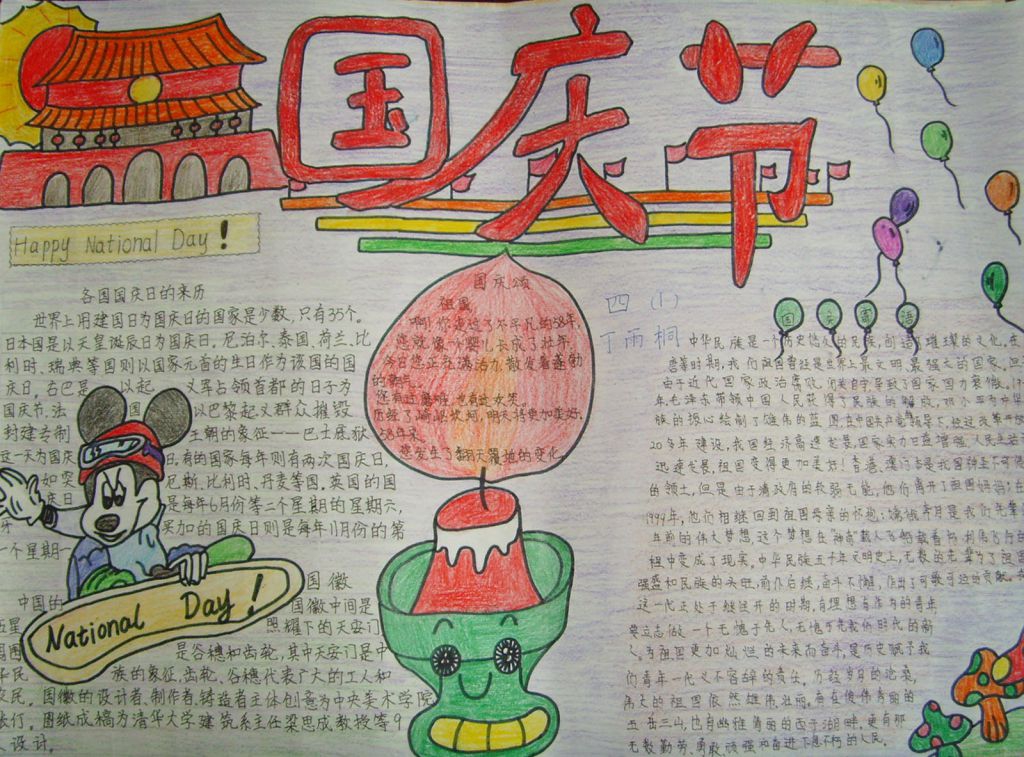 国庆节
Happy National Day！
各国国庆日的来历
世界上用建国日为国庆日的国家是少数,只有35个。
日本国是以天皇诞辰日为国庆日。尼泊尔、泰国、荷兰、比
利时、瑞典等国则以国家元首的生日作为该国的国
庆日。古巴是 以起 义军占领首都的日子为
国庆节,法 国 以巴黎起义群众摧毁
封建专制 王朝的象征——巴士底狱
这一天为国庆 日,有的国家每年则有两次国庆日,
如突 尼斯、比利时、丹麦等国,英国的国
庆日 是每年6月份第二个星期的星期六,
买加的国庆日则是每年11月份的第
一个星期一
National Day！
国徽
中国的 国徽中间是
五星 照耀下的天安门
周围 是谷穗和齿轮,其中天安门是中
华民 族的象征,齿轮、谷穗代表广大的工人和
农民。国徽的设计者、制作者、铸造者主体创意为中央美术学院
张仃。图纸成稿为清华大学建筑系主任梁思成教授等9
人设计。
国庆颂
祖国,
啊!你走过了不平凡的58年,
您就像一个婴儿长成了壮年,
今日您正在满治力,散发着蓬勃
的朝气。
您有过磨难,也有过欢笑。
历经了 坎坷,明天将更加美好。
58年来
您发生了翻天覆地的变化。
四(1)
丁雨桐
国庆寄语
中华民族是一个历史悠久的民族,创造了璀璨的文化,在
唐等时期,我们祖国曾经是世界上最文明、最强大的国家。但
由于近代国家政治腐败,闭关自守导致了国家国力衰微。19
年毛泽东带领中国人民获得了民族的解放,邓小平为中华
族的振心绘制了雄伟的蓝图,在中国共产党领导下,经过改革开放
20多年建设,我国经济高速发展,国家实力日益增强,人民生活
迅速发展,祖国变得更加美好!香港、澳门本是我国神圣不可侵
的领土,但是由于清政府的软弱无能,他们离开了祖国妈妈;在
1999年,他们相继回到祖国母亲的怀抱;
年前的伟大梦想,这个梦想在神舟载人飞船载着杨利伟飞行的
中变成了现实。中华民族五千年文明史上,无数的先辈为了祖国
强盛和民族的 ,前仆后继,奋斗不懈,作出了可歌可泣的贡献。我
这一代正处于继往开来的时期,有理想有作为的青年
要立志做一个无愧于先人,无愧于先我们时代的新
人。为祖国更加灿烂的未来而奋斗,是历史赋予我
们青年一代义不容辞的责任。历经岁月的沧桑,
伟大的祖国依然雄伟壮丽。有在俊伟秀丽的
五岳三山,也有幽雅俏丽的西子湖畔,更有那
无数勤劳、勇敢、顽强和奋进下息不朽的人民。